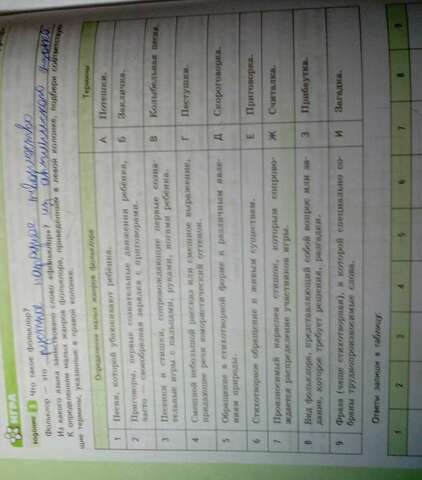 ИГРА
задание 3 Что такое фольклор?
Фольклор – это русское народное творчество
Из какого языка заимствовано слово «фольклор»? из английского языка
К определениям малых жанров фольклора, приведённым в левой колонке, подбери соответствую-
щие термины, указанные в правой колонке.
Определения малых жанров фольклора Термины
1 Песня, которой убаюкивают ребёнка. А Потешки.
2 Приговоры, первые сознательные движения ребёнка, Б Закличка.
часто — своеобразная зарядка с приговорами.
3 Песенки и стишки, сопровождающие первые созна- В Колыбельная песня.
тельные игры с пальцами, руками, ногами ребёнка.
4 Смешной небольшой рассказ или смешное выражение, Г Пестушки.
придающее речи юмористический оттенок.
5 Обращение в стихотворной форме к различным явле- Д Скороговорка.
ниям природы.
6 Стихотворное обращение к живым существам. Е Приговорка.
7 Произвольный нараспев стишок, которым сопрово- Ж Считалка.
ждается распределение участников игры.
8 Вид фольклора, представляющий собой вопрос или за- З Прибаутка.
дание, которое требует решения, разгадки.
9 Фраза (чаще стихотворная), в которой специально со- И Загадка.
браны труднопроизносимые слова.
Ответы запиши в таблицу.
1 2 3 4 5 6 7 8 9